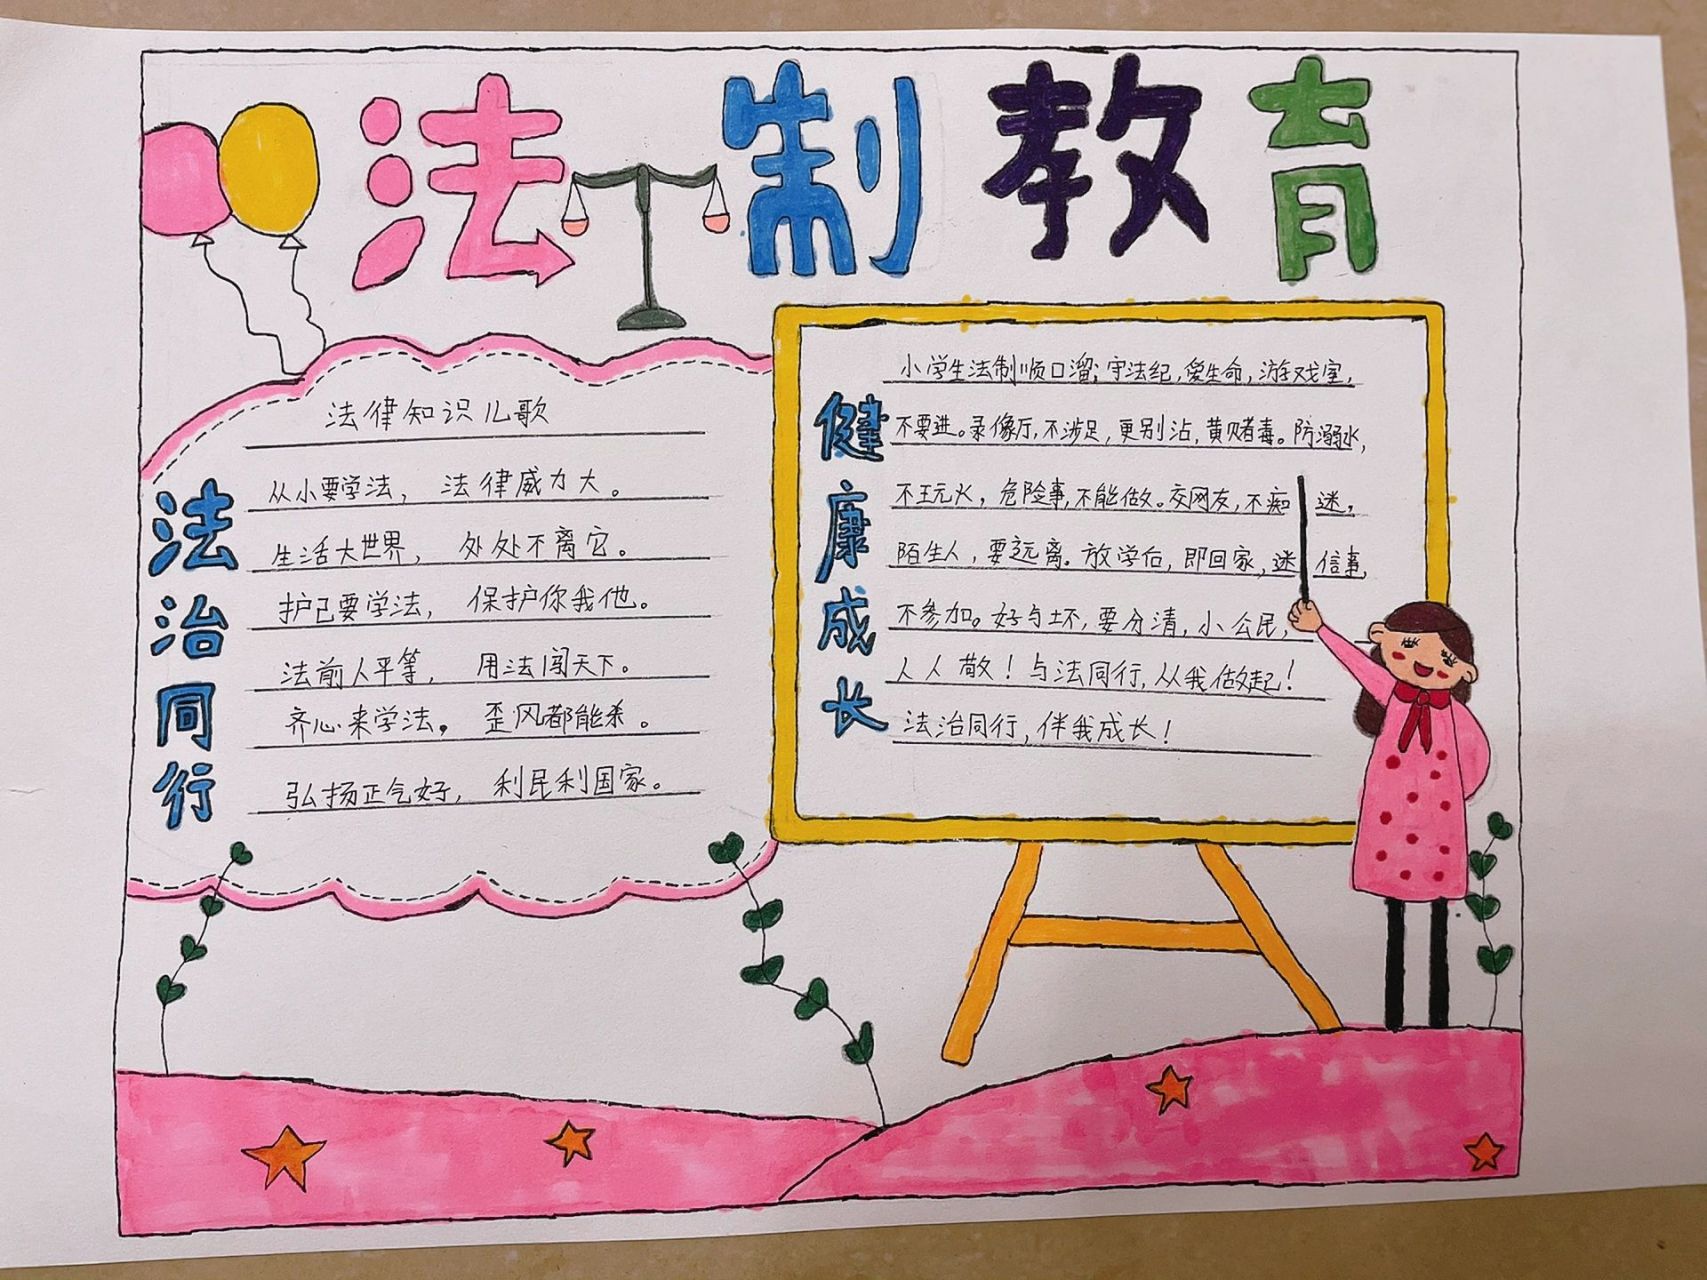 法制教育
法治同行
法律知识儿歌
从小要学法， 法律威力大。
生活大世界， 处处不离它。
护己要学法， 保护你我他。
法前人平等， 用法闯天下。
齐心来学法。 歪风都能杀。
弘扬正气好， 利民利国家。
健康成长
小学生法制顺口溜；守法纪，爱生命，游戏室，
不要进。录像厅，不涉足，更别沾，黄赌毒。防溺水，
不玩火，危险事，不能做。交网友，不痴迷，
陌生人，要远离。放学后，即回家，迷信事，
不参加。好与坏，要分清，小公民，
人人敬！与法同行，从我做起！
法治同行，伴我成长！